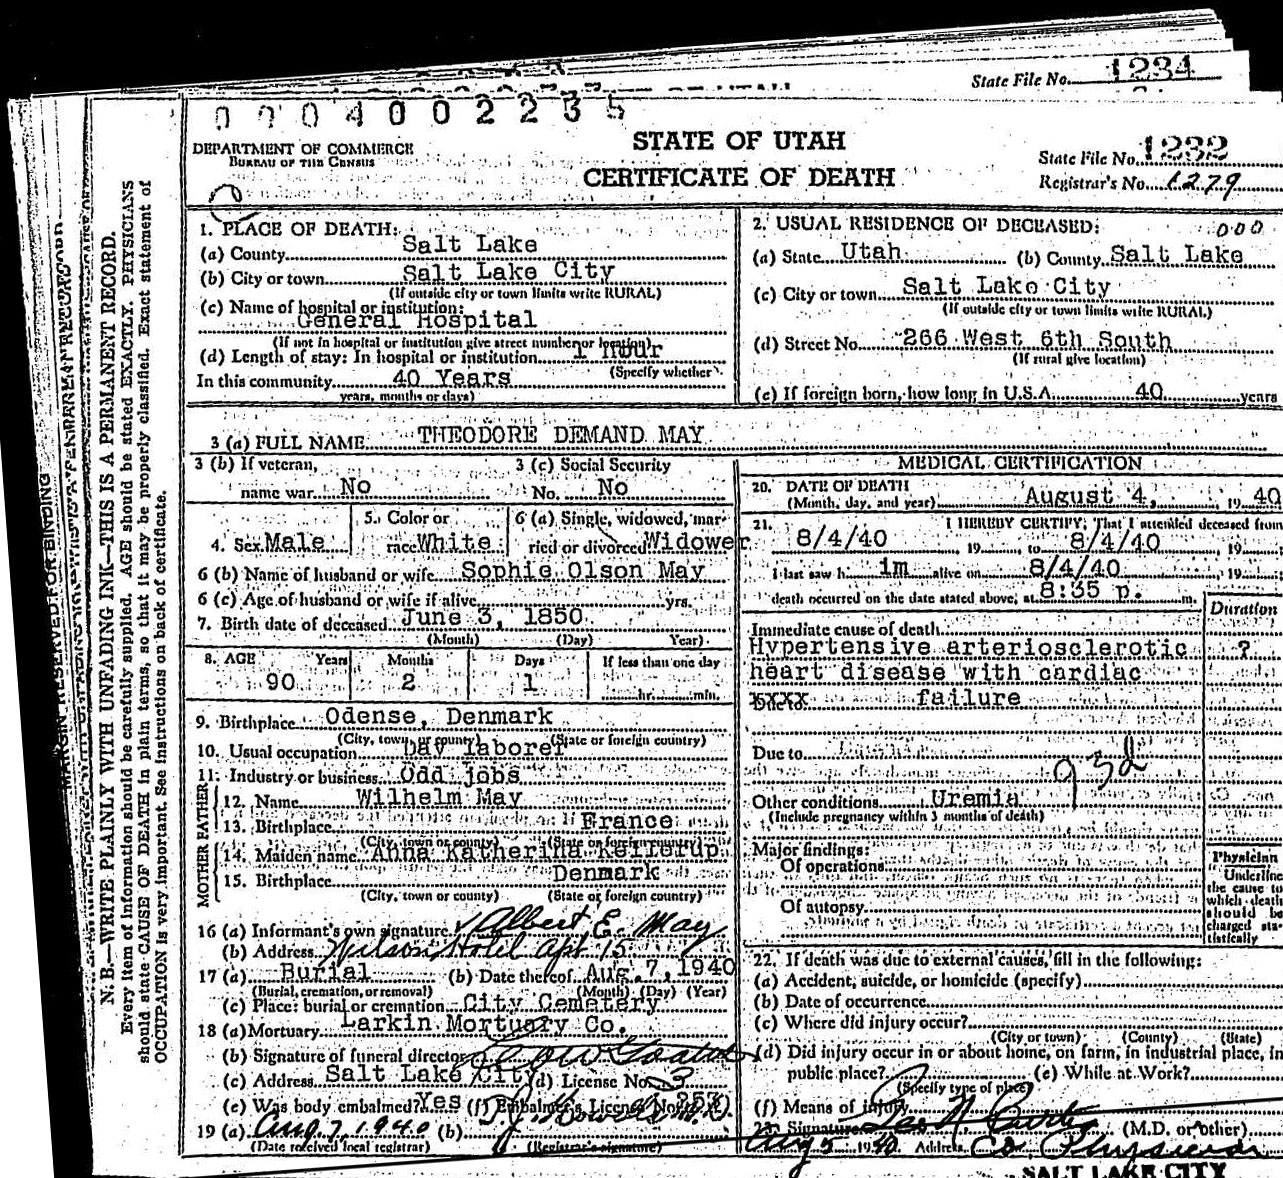 State File No. 1234
0004002235
DEPARTMENT OF COMMERCE
BUREAU OF THE CENSUS
STATE OF UTAH
CERTIFICATE OF DEATH
State File No. 1232
Registrar's No. 1279
1. PLACE OF DEATH:
(a) County Salt Lake
(b) City or town Salt Lake City
(If outside city or town limits write RURAL)
(c) Name of hospital or institution:
General Hospital
(If not in hospital or institution give street number or location)
(d) Length of stay: In hospital or institution 1 hour
(Specify whether
In this community 40 Years
years, months or days)
2. USUAL RESIDENCE OF DECEASED: 000
(a) State Utah (b) County Salt Lake
(c) City or town Salt Lake City
(If outside city or town limits write RURAL)
(d) Street No. 266 West 6th South
(If rural give location)
(e) If foreign born, how long in U.S.A. 40 years
3 (a) FULL NAME THEODORE DEMAND MAY
3 (b) If veteran,
name war No
3 (c) Social Security
No. No
4. Sex Male
5. Color or
race White
6 (a) Single, widowed, mar-
ried or divorced Widower
6 (b) Name of husband or wife Sophie Olson May
6 (c) Age of husband or wife if alive yrs.
7. Birth date of deceased June 3, 1850
(Month) (Day) Year)
8. AGE Years Months Days If less than one day
90 2 1 hr. min.
9. Birthplace Odense, Denmark
(City, town, or county) (State or foreign country)
10. Usual occupation Day laborer
11. Industry or business Odd jobs
FATHER
12. Name Wilhelm May
13. Birthplace France
(City, town or county) (State or foreign country)
MOTHER
14. Maiden name Anna Katherina Kellerup
15. Birthplace Denmark
(City, town or county) (State or foreign country)
16 (a) Informant's own signature Albert E. May
(b) Address Wilson Hotel Apt 15
17 (a) Burial (b) Date thereof Aug. 7, 1940
(Burial, cremation, or removal) (Month) (Day) (Year)
(c) Place: burial or cremation City Cemetery
18 (a) Mortuary Larkin Mortuary Co.
(b) Signature of funeral director
(c) Address Salt Lake City (d) License No. 3
(e) Was body embalmed? Yes (f) Embalmer's License No. 253
19 (a) Aug 7, 1940 (b)
(Date received local registrar) (Registrar's signature)
MEDICAL CERTIFICATION
20. DATE OF DEATH
(Month, day, and year) August 4, 19 40
21. I HEREBY CERTIFY, That I attended deceased from
8/4/40 19 to 8/4/40, 19
I last saw h im alive on 8/4/40, 19
death occurred on the date stated above, at 8:35 p. m.
Duration
Immediate cause of death
Hypertensive arteriosclerotic ?
heart disease with cardiac
xxxx failure
Due to
93d
Other conditions Uremia
(Include pregnancy within 3 months of death)
Major findings:
Of operations
Of autopsy
Physician
Underline
the cause to
which death
should be
charged sta-
tistically
22. If death was due to external causes, fill in the following:
(a) Accident, suicide, or homicide (specify)
(b) Date of occurrence
(c) Where did injury occur?
(City or town) (County) (State)
(d) Did injury occur in or about home, on farm, in industrial place, in
public place? (e) While at Work?
(Specify type of place)
(f) Means of injury
23. Signature Leo N. Curtis (M.D. or other)
Aug 5 1940 Address Co. Physician
SALT LAKE CITY
MARGIN RESERVED FOR BINDING
N. B.—WRITE PLAINLY WITH UNFADING INK—THIS IS A PERMANENT RECORD.
Every item of information should be carefully supplied. AGE should be stated EXACTLY. PHYSICIANS
should state CAUSE OF DEATH in plain terms, so that it may be properly classified. Exact statement of
OCCUPATION is very important. See instructions on back of certificate.